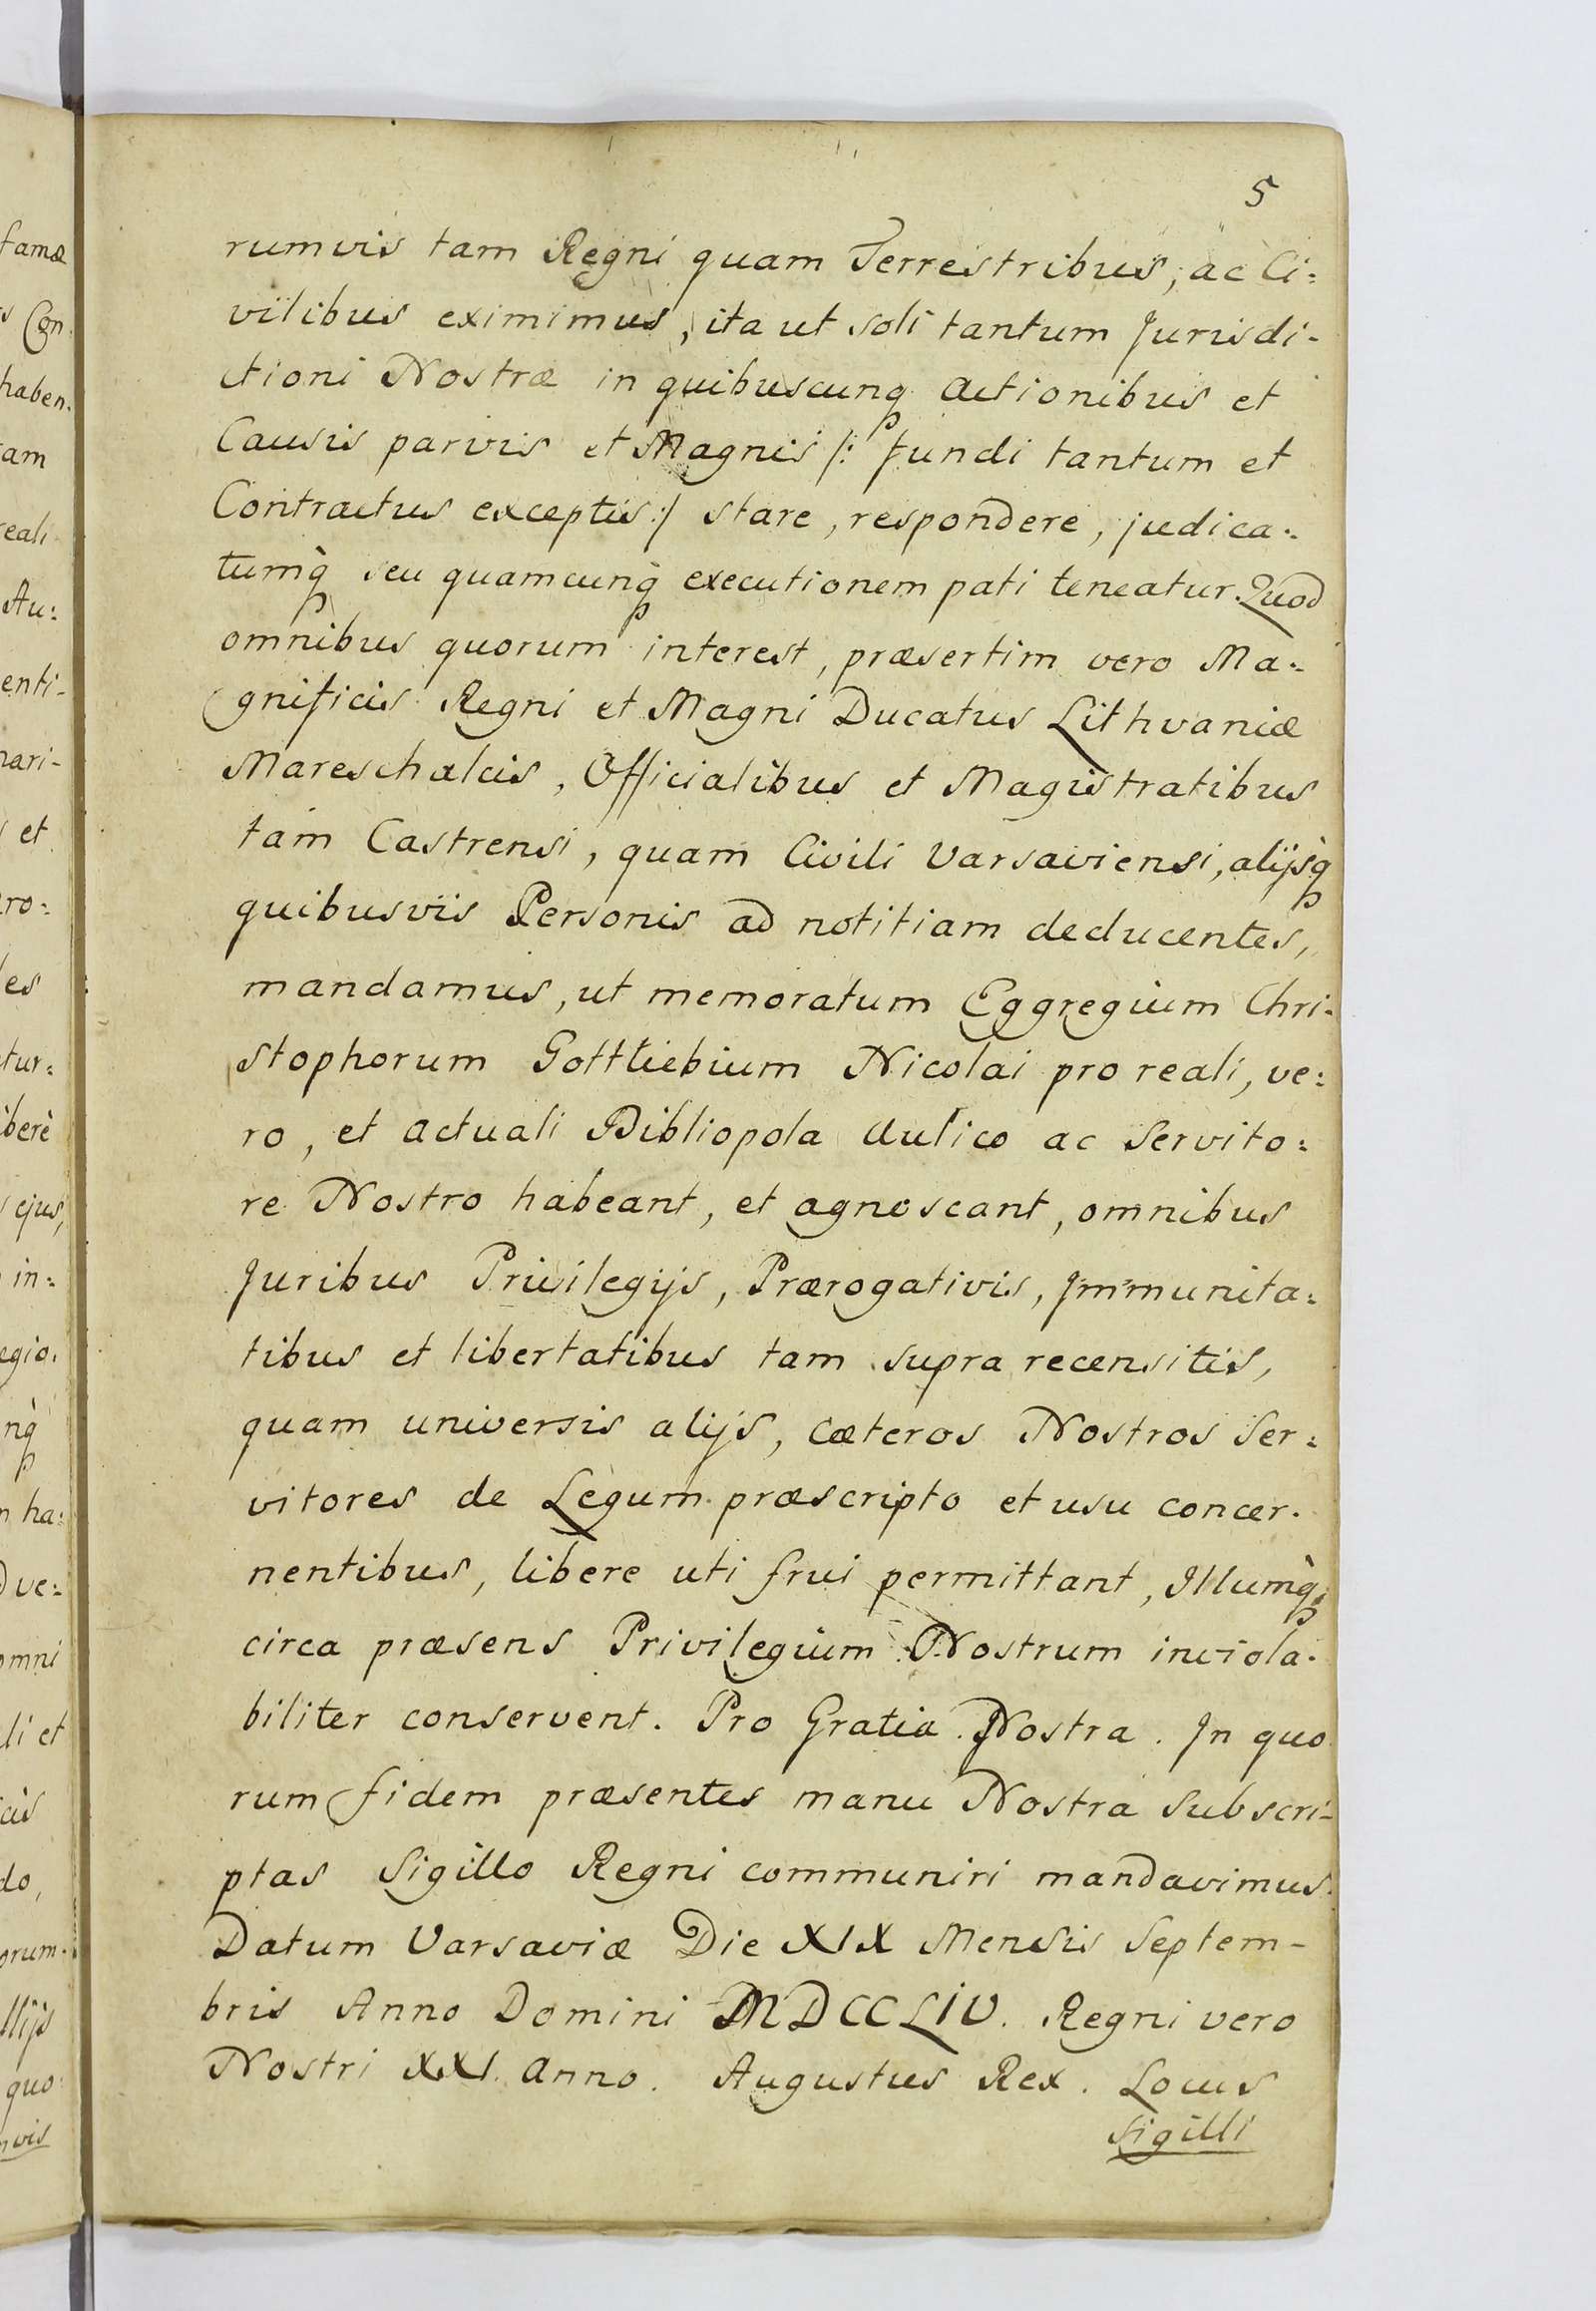 5
rumvis tam Regni quam Terrestribus, ac Ci:
vilibus eximimus, ita ut soli tantum Jurisdi-
ctioni Nostræ in quibuscunq actionibus et
Causis parvis et Magnis /: fundi tantum et
Contractus exceptis :/ stare, respondere, judica:
tumq̀ seu quamcunq̀ executionem pati teneatur. Quod
omnibus quorum interest, præsertim vero Ma:
gnificis Regni et Magni Ducatus Lithvaniæ
Mareschalcis, Officialibus et Magistratibus
tam Castrensi, quam Civili Varsaviensi, alijsq̀
quibusvis Personis ad notitiam deducentes,
mandamus, ut memoratum Eggregium Chri:
stophorum Gottliebium Nicolai pro reali, ve:
ro, et actuali Bibliopola Aulico ac Servito:
re Nostro habeant, et agnoscant, omnibus
Juribus Privilegijs, Prærogativis, Immunita:
tibus et libertatibus tam supra recensitis,
quam universis alijs, cæteros Nostros Ser:
vitores de Legum præscripto et usu concer:
nentibus, libere uti frui permittant, Illumq̀
circa præsens Privilegium Nostrum inviola:
biliter conservent. Pro Gratia Nostra. In quo
rum fidem præsentes manu Nostra Subscri-
ptas Sigillo Regni communiri mandavimus.
Datum Varsaviæ Die XIX Mensis Septem-
bris Anno Domini MDCCLIV. Regni vero
Nostri XXI. anno. Augustus Rex. Locus
Sigilli
famæ
s Con
haben:
eali
Au:
enti-
nari-
et
ro:
les
tur:
iberè
ejus,
in:
egio.
nq̀
ha:
ve:
omni
li et
do,
orum
quo
vis